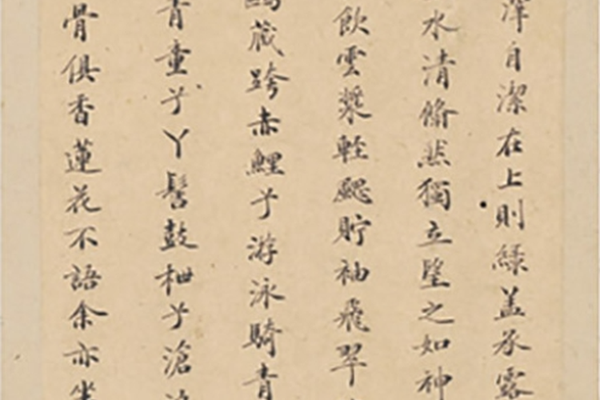 滓自潔在上則綠盖承露
水清翛然獨立望之如神
飲雲漿輕颸貯袖飛翠
藏跨赤鯉兮游泳騎青
青童兮丫髻鼓枻兮滄
骨俱香蓮花不語余亦坐